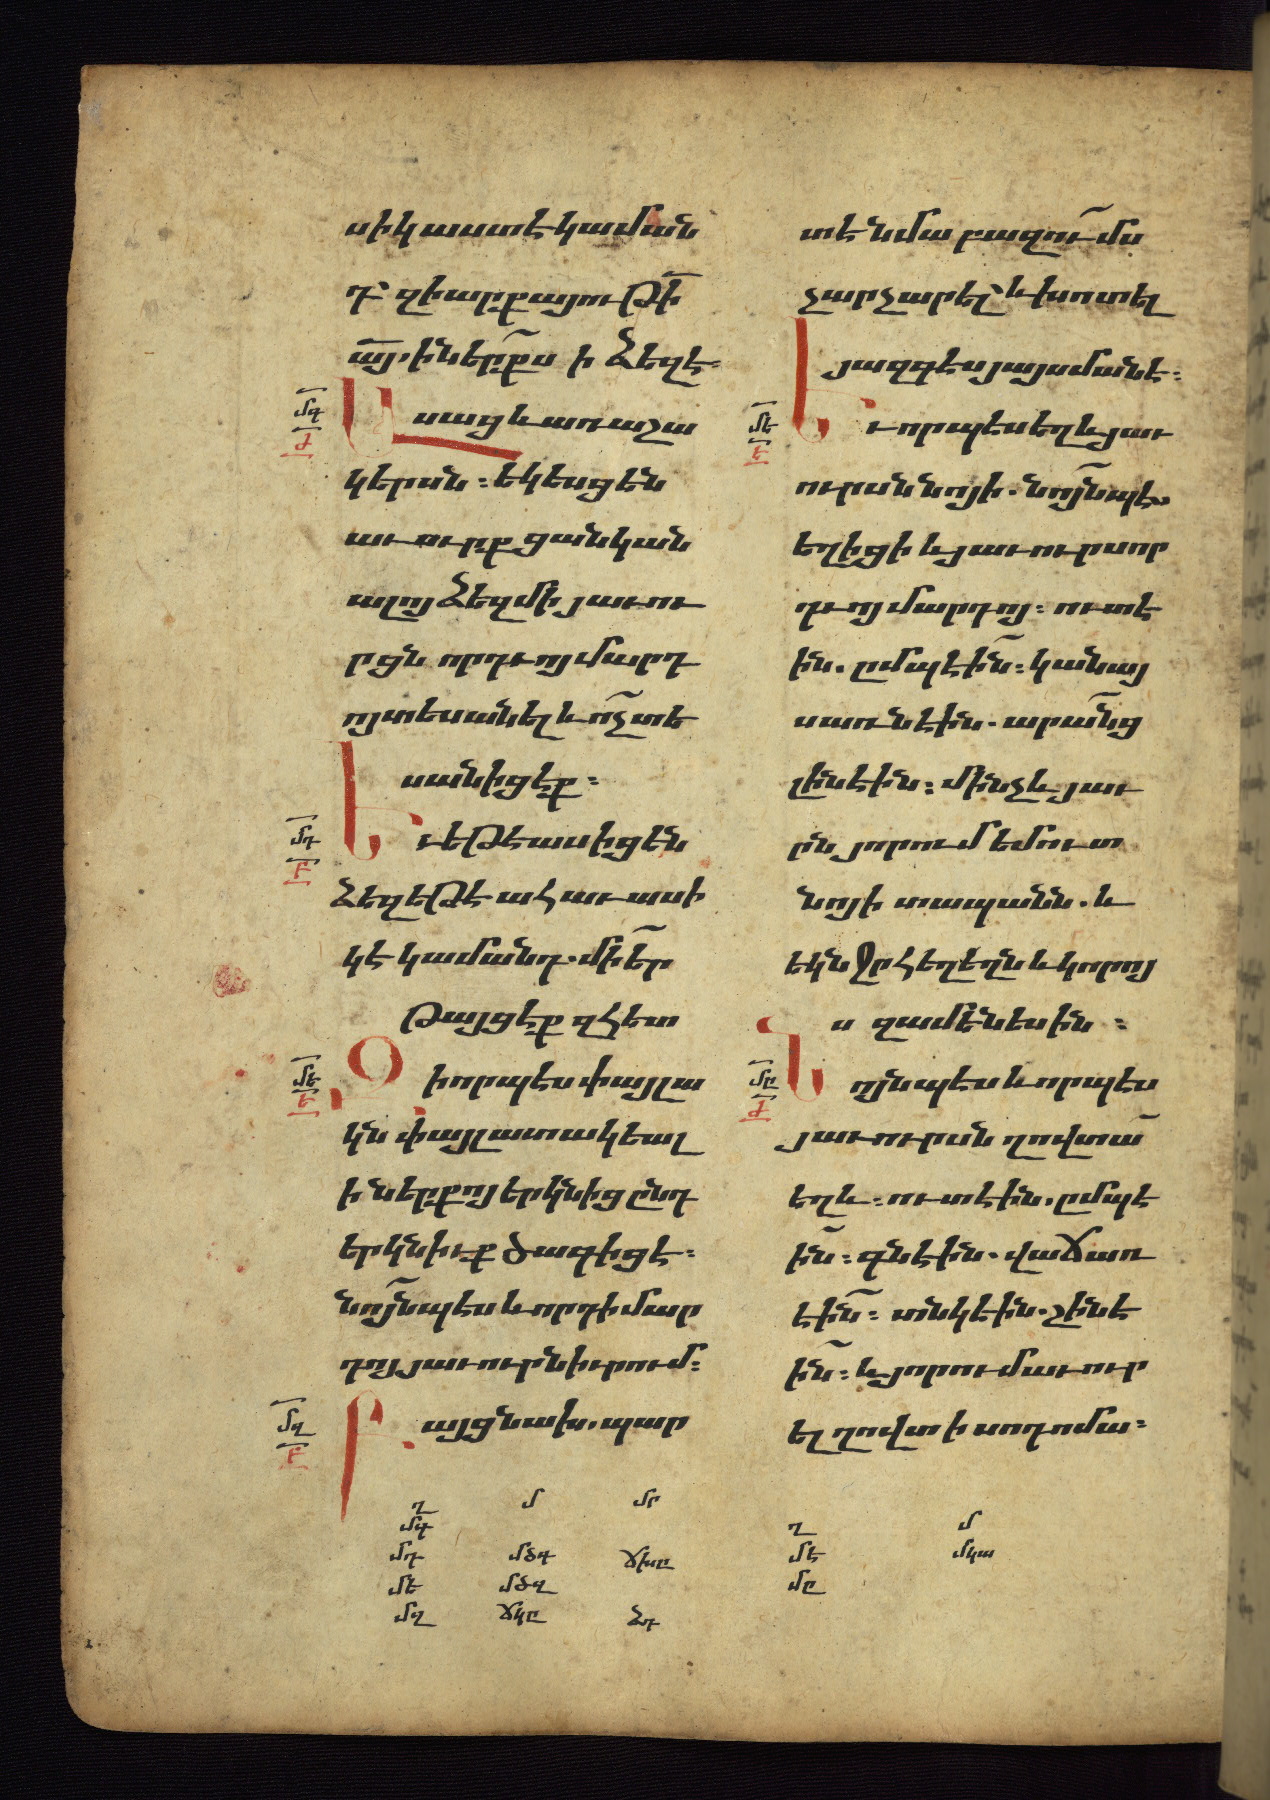 սիկ աստէ կամ ան
դ՝ զի արքայութի
այ. ի ներքս ի ձեզ է։
մգ
Ժ
Ասաց և առ աշա
կերտսն։ եկեսցեն
աւուրք ցանկան
ալոյ ձեզ մի յաւու
րցն որդւոյ մարդ
ոյ տեսանել և ոչ տե
սանիցէք։
մդ
Բ
Եւ եթէ ասիցեն
ձեզ եթէ ահաւասի
կէ կամ անդ. մի եր
թայցէք զհետ
մե
Ե
Զի որպէս փայլա
կն փայլատակեալ
ի ներքոյ երկնից ընդ
երկնիւք ծագիցէ։
նոյնպէս և որդի մար
դոյ յաւուրն իւրում։
մզ
Բ
Բայց նախ. պար
տ է նմա բազում ինչ
չարչարել՝ և խոտել
յազգէս յայսմանէ։
մէ
Ե
Եւ որպէս եղև յաւ
ուրսն նոյի. նոյնպէս
եղիցի և յաւուրս որ
դւոյ մարդոյ։ ուտէ
ին. ըմպէին։ կանայ
առնէին. արանց
լինէին։ մինչև յաւ
րն յորում եմուտ
նոյի տապանն. և
եկն ջրհեղեղն և կորոյ
ս զամենեսին։
մը
Ժ
Նոյնպէս և որպէս
յաւուրսն ղովտա
եղև։ ուտէին. ըմպէ
ին։ գնէին. վաճառ
էին։ տնկէին. շինէ
ին։ և յորում աւուր
ել ղովտ ի սոդոմա։
ղ մ մր
մգ
մդ մծգ ճխը
մե մծզ
մզ ճկը ձդ
ղ մ
մէ մկա
մը